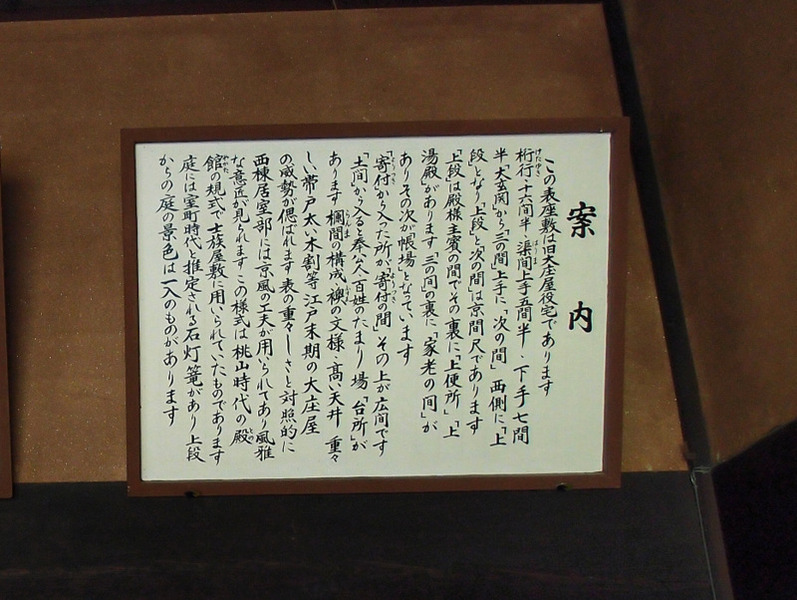 案内
この表座敷は旧大庄屋役宅であります
桁行・十六間半・渠間上手五間半・下手七間
半「大玄関」から「三の間」上手に「次の間」西側に「上
段」となり「上段」と「次の間」は京間尺であります
「上段」は殿様主賓の間でその裏に「上便所」「上
湯殿」があります「三の間」の裏に「家老の間」が
ありその次が「帳場」となっています
「寄付」から入った所が「寄付の間」その上が広間です
「土間」から入ると奉公人百姓のたまり場「台所」が
あります欄間の構成・襖の文様・高い天井 重々
しい帯戸太い木割等江戸末期の大庄屋
の威勢が偲ばれます表の重々しさと対照的に
西棟居室部には京風の工夫が用いられてあり風雅
な意匠が見られますこの様式は桃山時代の殿
館の規式で士族屋敷に用いられていたものであります
庭には室町時代と推定される石灯篭があり上段
からの庭の景色は一入のものがあります